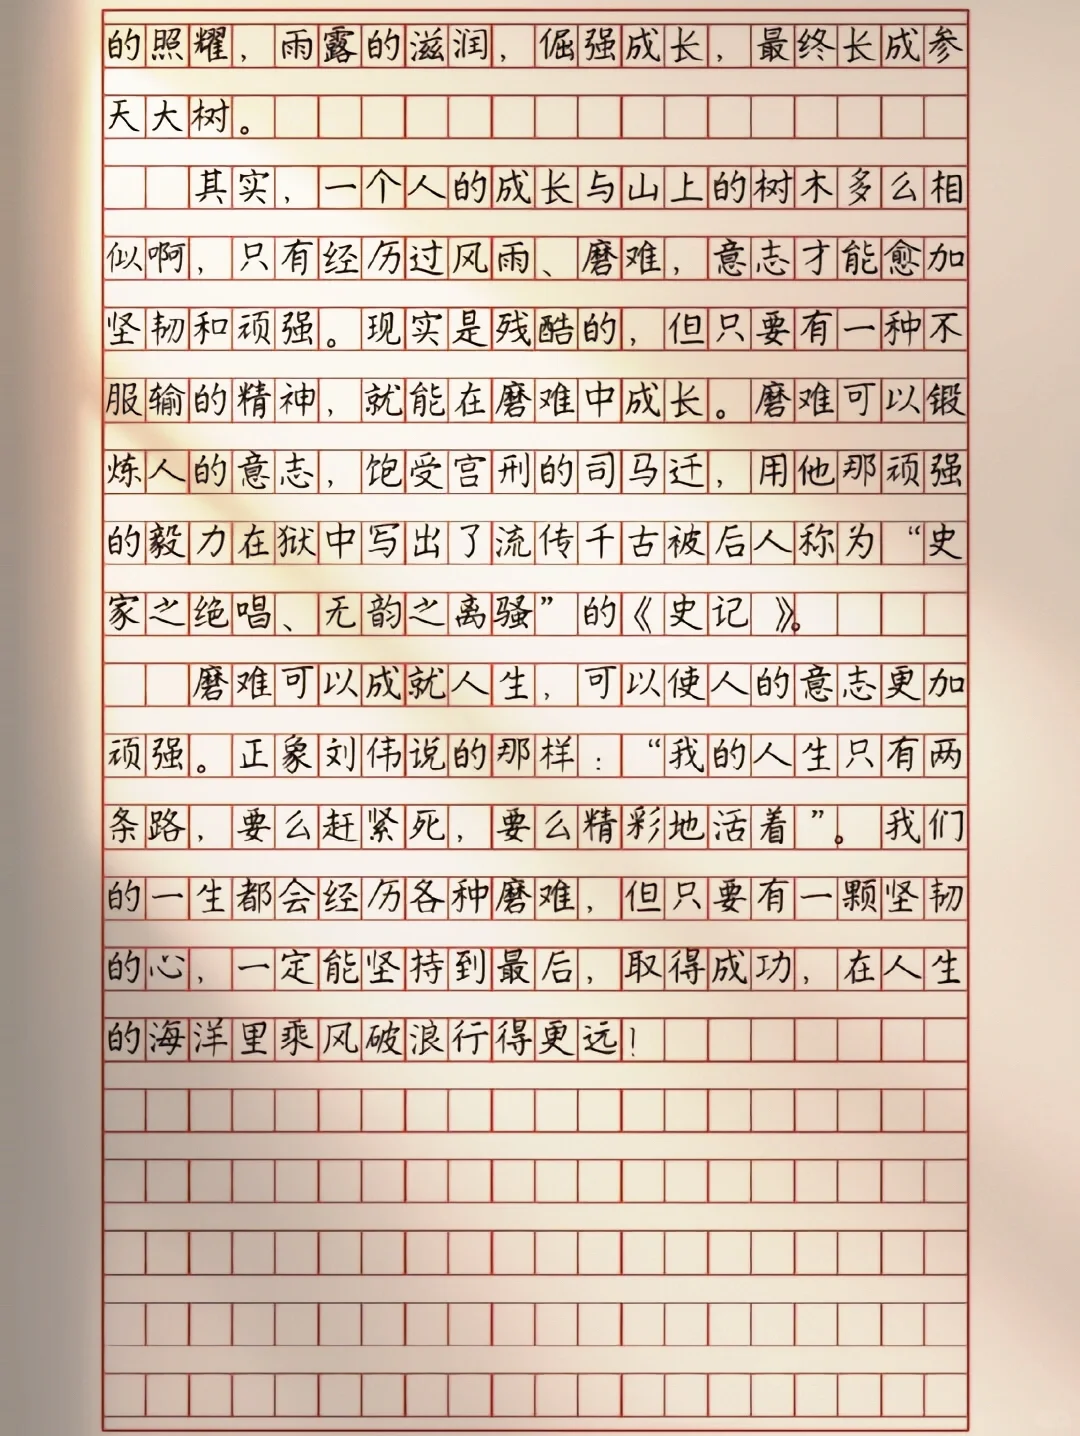 的照耀，雨露的滋润，倔强成长，最终长成参
天大树。
其实，一个人的成长与山上的树木多么相
似啊，只有经历过风雨、磨难，意志才能愈加
坚韧和顽强。现实是残酷的，但只要有一种不
服输的精神，就能在磨难中成长。磨难可以锻
炼人的意志，饱受宫刑的司马迁，用他那顽强
的毅力在狱中写出了流传千古被后人称为“史
家之绝唱、无韵之离骚”的《史记》。
磨难可以成就人生，可以使人的意志更加
顽强。正象刘伟说的那样：“我的人生只有两
条路，要么赶紧死，要么精彩地活着”。我们
的一生都会经历各种磨难，但只要有一颗坚韧
的心，一定能坚持到最后，取得成功，在人生
的海洋里乘风破浪行得更远！